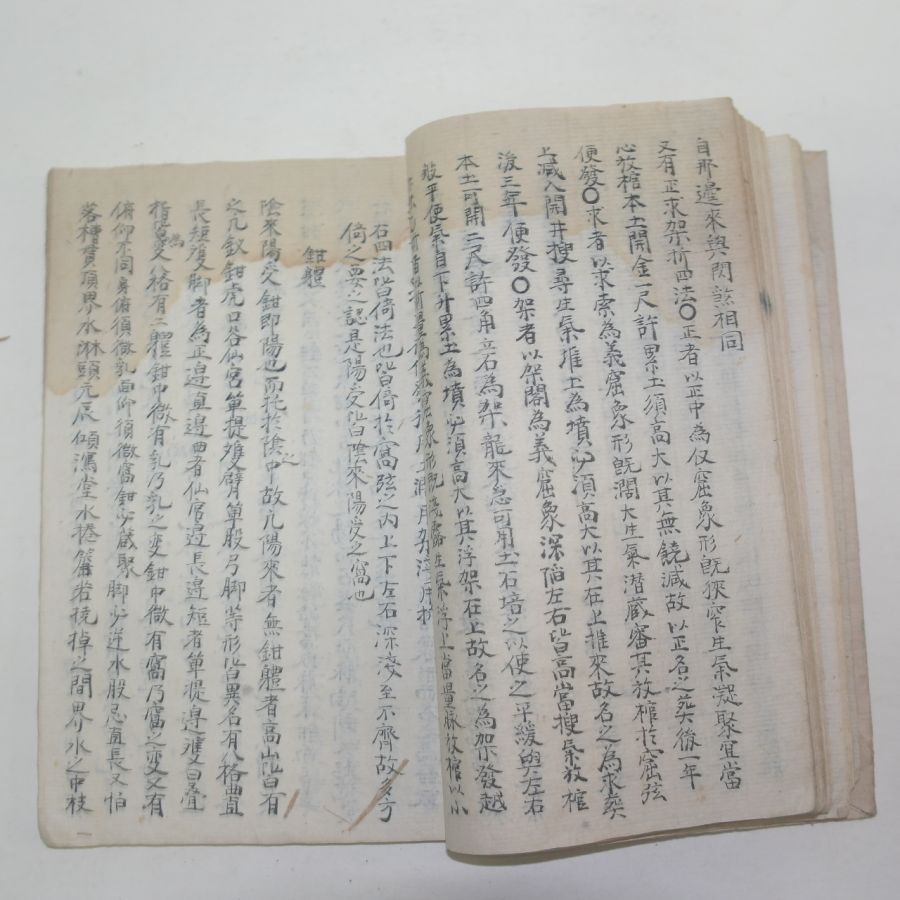 自那邊來與閃煞相同
又有正求架折四法〇正者以正中為仅窟象形旣狹窄生氣凝聚宜當
心放棺本土開金一尺許累土須高大以其無饒減故以正名之葬後一年
便發〇求者以求索為義窟象形旣濶大生氣潜藏審其放棺於窟弦
上減入開井搜尋生氣堆土為墳必須高大以其在上推來故名之為求葬
後三年便發〇架者以架閣為義窟象深陷左右皆高當搜氣放棺
本土可開二尺許四角立石為架龍來急可用土石培之以使之平緩與左右
般平便氣自下升累土為墳必須高大以其浮架在上故名之為架發越
形旣淺露生氣浮上當量脉放棺以小
右四法皆倚法也皆倚於窩弦之內上下左右深淺至不齊故多方
倚之要之認是陽受皆陰來陽受之窩也
鉗體
陰來陽受鉗即陽也而托於陰中故亢陽來者無鉗體者高山皆有
之亢釵鉗虎口合仙宮單提雙臂單股弓脚等形皆異名有八格曲直
長短雙脚者為正邊直邊曲者仙宮邊長邊短者單提邊雙曰疊
指為變八格有二體鉗中微有乳乃乳之變鉗中微有窩乃窩之變又有
俯仰不同身俯須微乳面仰須微窩鉗必藏聚脚必逆水股忌直長又怕
落槽貫頂界水淋頭元辰傾瀉堂水捲簾若撓掉之間界水之中枝